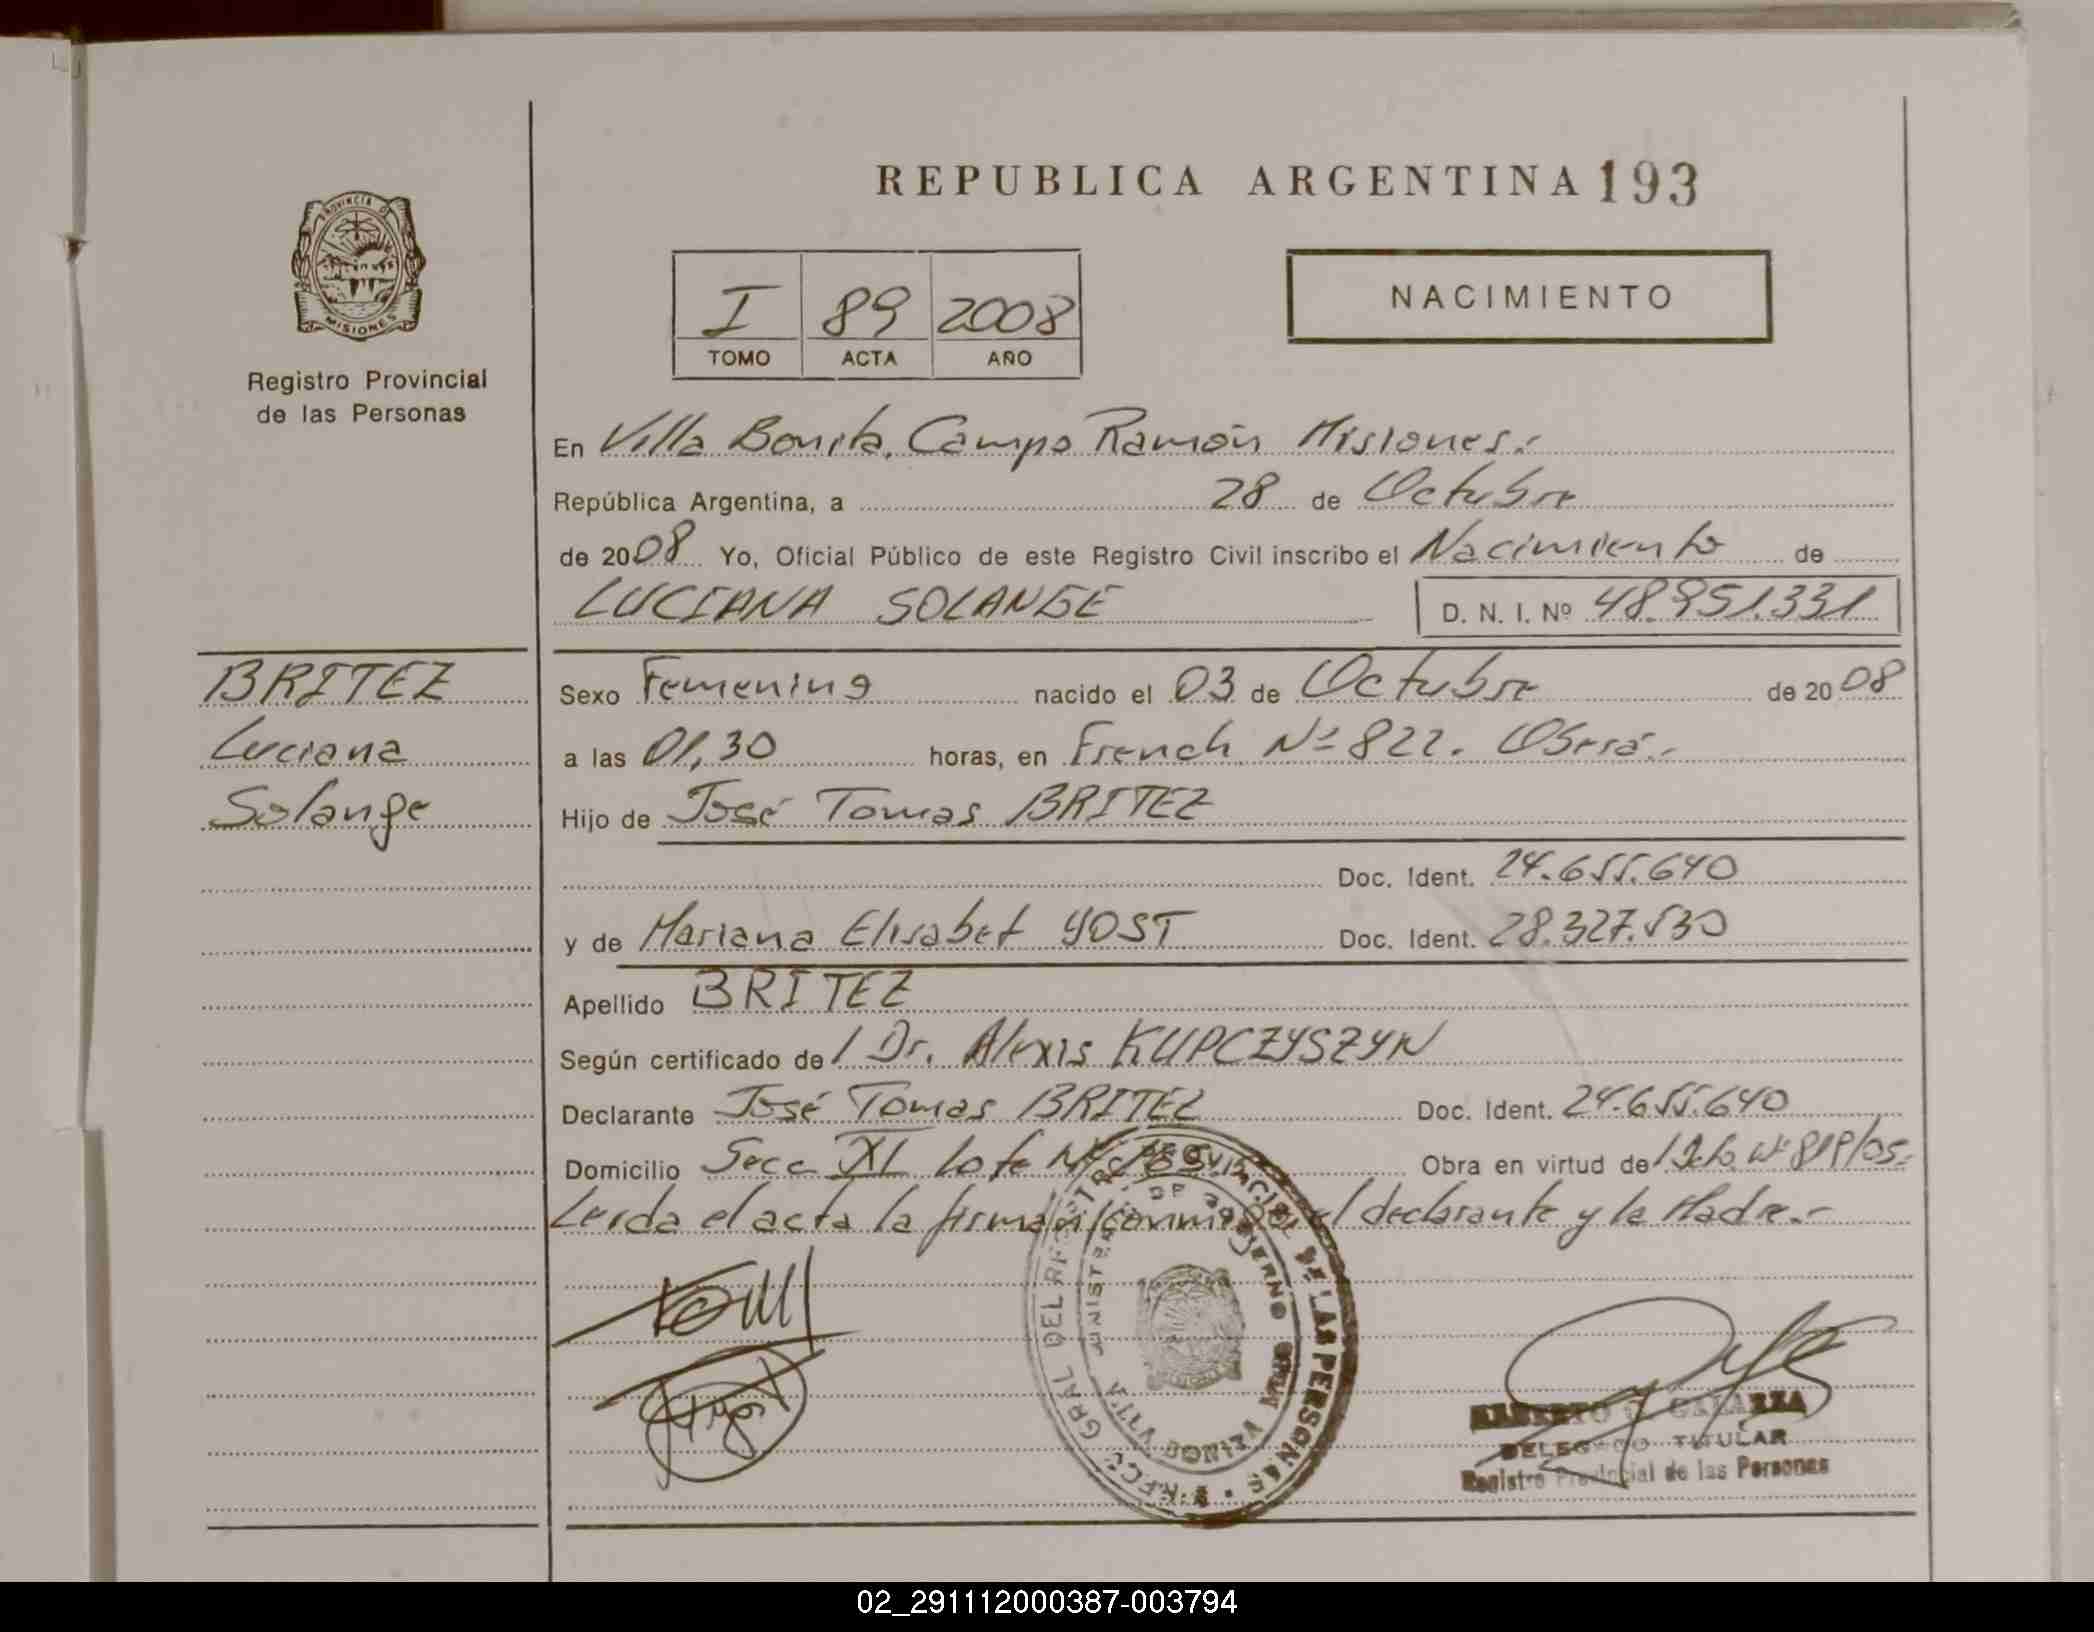 REPUBLICA ARGENTINA 193
PROVINCIA DE
MISIONES
Registro Provincial
de las Personas
I 89 2008
TOMO ACTA AÑO
NACIMIENTO
En Villa Bonita, Campo Ramón Misiones.-
República Argentina, a 28 de Octubre
de 2008 Yo, Oficial Público de este Registro Civil inscribo el Nacimiento de
LUCIANA SOLANGE D. N. I. Nº 48.951.331
BRITEZ
Luciana
Solange
Sexo Femenino nacido el 03 de Octubre de 2008
a las 01,30 horas, en French Nº 822. Oberá.-
Hijo de José Tomas BRITEZ
Doc. Ident. 24.655.640
y de Mariana Elisabet YOST Doc. Ident. 28.327.530
Apellido BRITEZ
Según certificado de / Dr. Alexis KUPCZYSZYN
Declarante José Tomas BRITEZ Doc. Ident. 24.655.640
Domicilio Secc XI Lote Obra en virtud de / Dcto Nº 819/05.-
Leída el acta la firman conmigo el declarante y la Madre.-
GRAL DEL REGISTRO PROVINCIAL DE LAS PERSONAS
MINISTERIO DE GOBIERNO
VILLA BONITA
ALBERTO C. GALARZA
DELEGADO TITULAR
Registro Provincial de las Personas
02_291112000387-003794